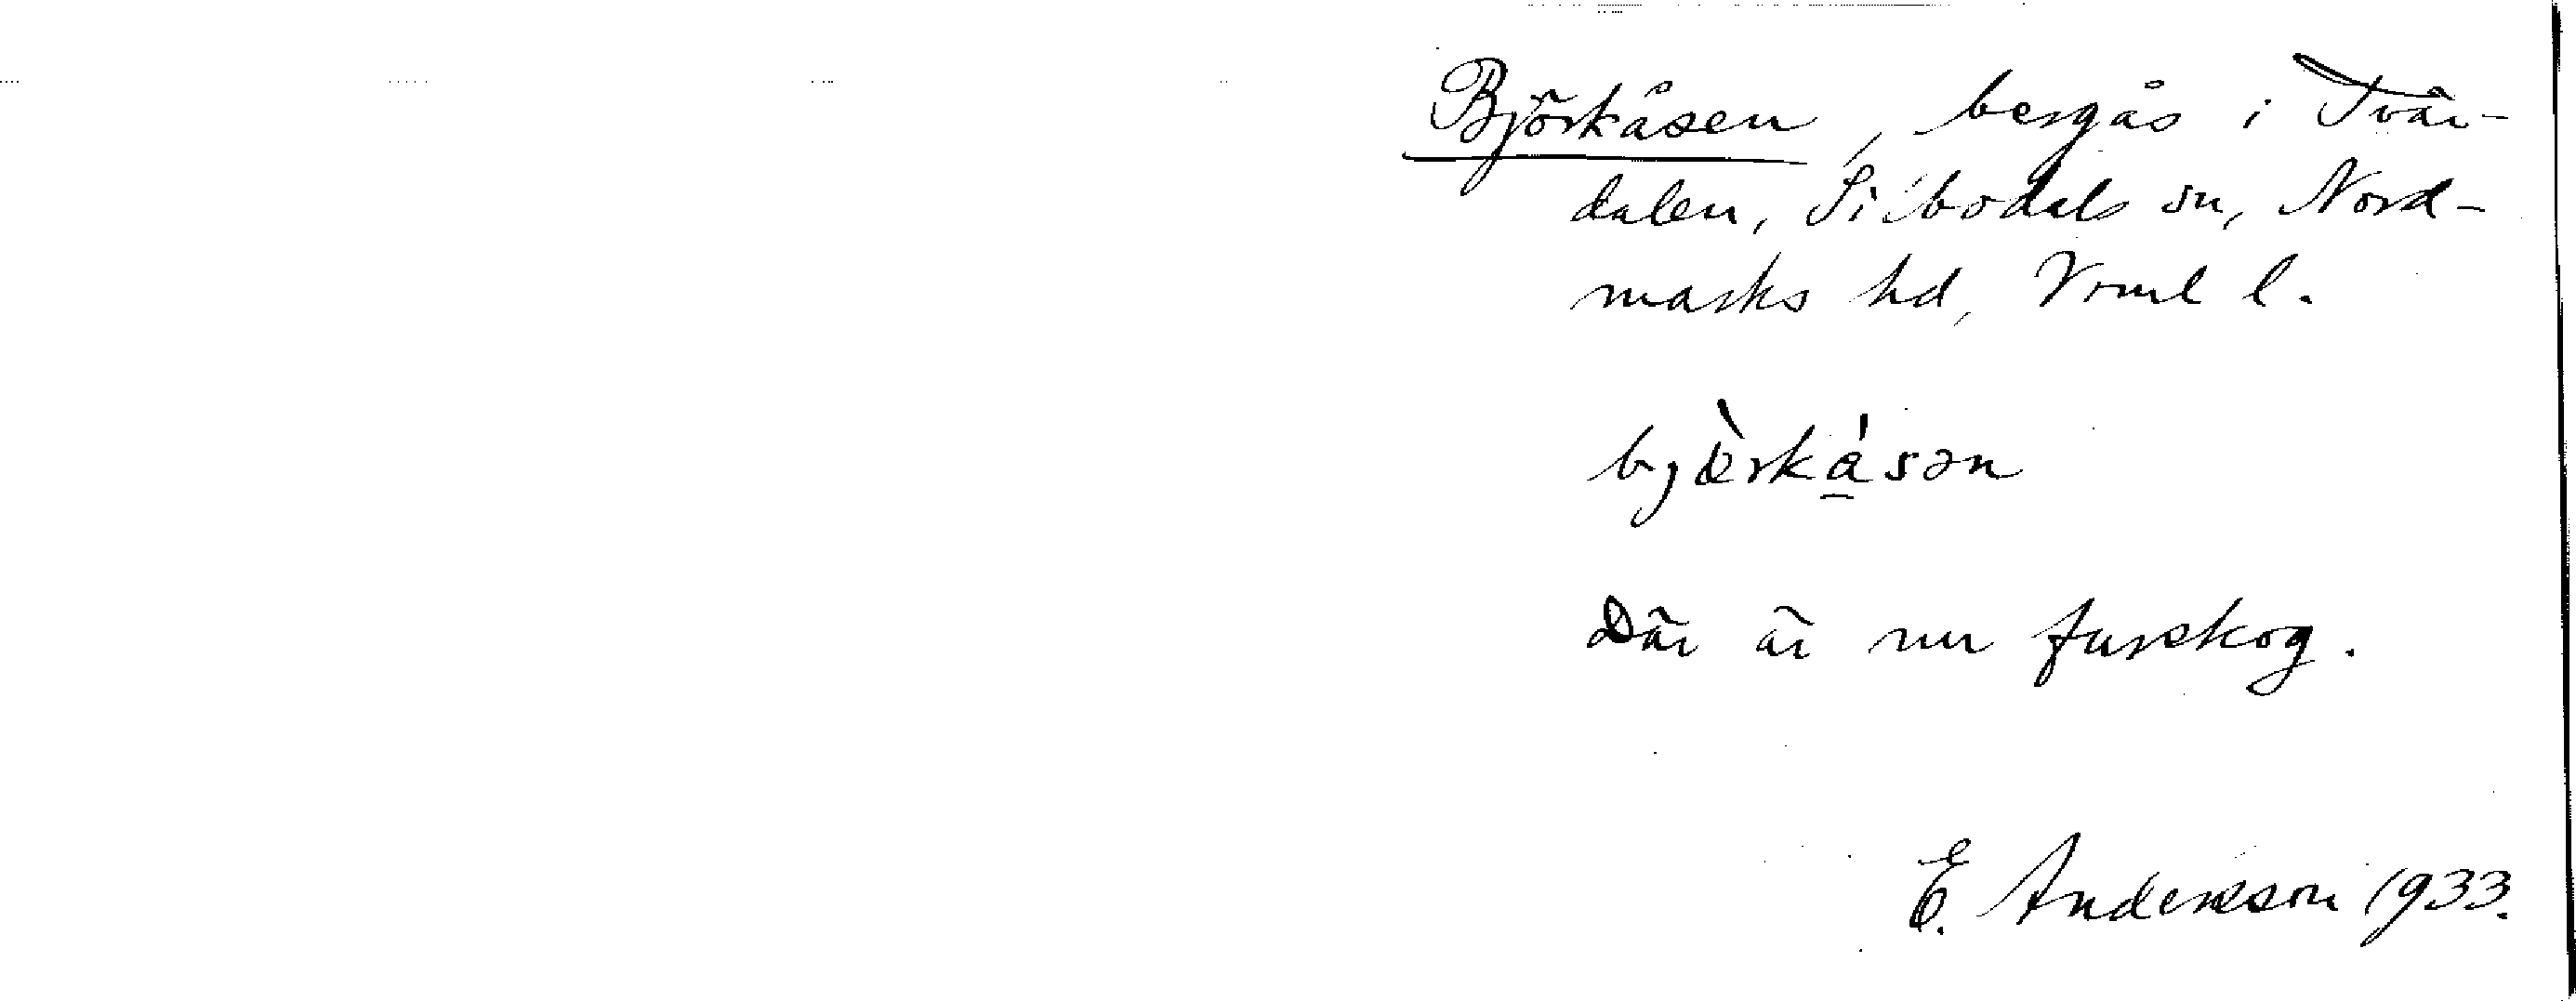 Björkåsen, bergås i Tvär-
dalen, Silbodals sn, Nord-
marks hd, Vrml l.
bjærkåsən
Där är nu furskog.
E. Andersson 1933.